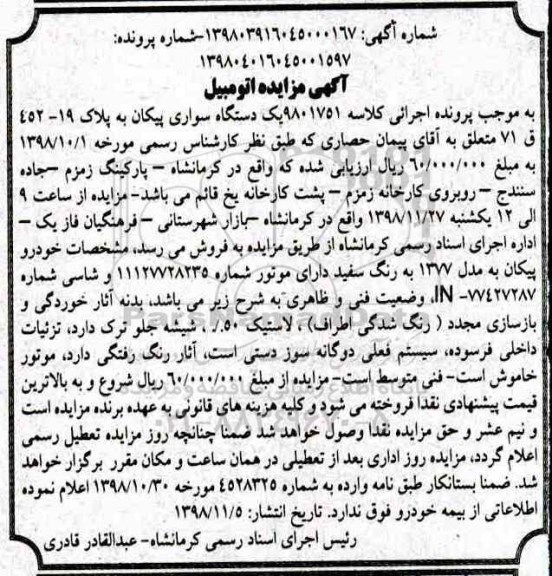 شماره آگهی: ۱۳۹۸۰۳۹۱۶۰۴۵۰۰۰۱۶۷-شماره پرونده:
۱۳۹۸۰۴۰۱۶۰۴۵۰۰۱۵۹۷
آگهی مزایده اتومبیل
به موجب پرونده اجرائی کلاسه ۹۸۰۱۷۵۱یک دستگاه سواری پیکان به پلاک ۱۹- ۴۵۲
ق ۷۱ متعلق به آقای پیمان حصاری که طبق نظر کارشناس رسمی مورخه ۱۳۹۸/۱۰/۱
به مبلغ ۶۰/۰۰۰/۰۰۰ ریال ارزیابی شده که واقع در کرمانشاه – پارکینگ زمزم –جاده
سنندج – روبروی کارخانه زمزم – پشت کارخانه یخ قائم می باشد- مزایده از ساعت ۹
الی ۱۲ یکشنبه ۱۳۹۸/۱۱/۲۷ واقع در کرمانشاه –بازار شهرستانی – فرهنگیان فاز یک –
اداره اجرای اسناد رسمی کرمانشاه از طریق مزایده به فروش می رسد، مشخصات خودرو
پیکان به مدل ۱۳۷۷ به رنگ سفید دارای موتور شماره ۱۱۱۲۷۷۲۸۲۳۵ و شاسی شماره
IN -۷۷۴۲۷۲۸۷، وضعیت فنی و ظاهری به شرح زیر می باشد، بدنه آثار خوردگی و
بازسازی مجدد ( رنگ شدگی اطراف) ، لاستیک ۵۰٪ . شیشه جلو ترک دارد، تزئیات
داخلی فرسوده، سیستم فعلی دوگانه سوز دستی است، آثار رنگ رفتگی دارد، موتور
خاموش است- فنی متوسط است- مزایده از مبلغ ۶۰/۰۰۰/۰۰۰ ریال شروع و به بالاترین
قیمت پیشنهادی نقدا فروخته می شود و کلیه هزینه های قانونی به عهده برنده مزایده است
و نیم عشر و حق مزایده نقدا وصول خواهد شد ضمنا چنانچه روز مزایده تعطیل رسمی
اعلام گردد، مزایده روز اداری بعد از تعطیلی در همان ساعت و مکان مقرر برگزار خواهد
شد. ضمنا بستانکار طبق نامه وارده به شماره ۴۵۲۸۳۲۵ مورخه ۱۳۹۸/۱۰/۳۰ اعلام نموده
اطلاعاتی از بیمه خودرو فوق ندارد. تاریخ انتشار: ۱۳۹۸/۱۱/۵
رئیس اجرای اسناد رسمی کرمانشاه- عبدالقادر قادری
ParsNamadData